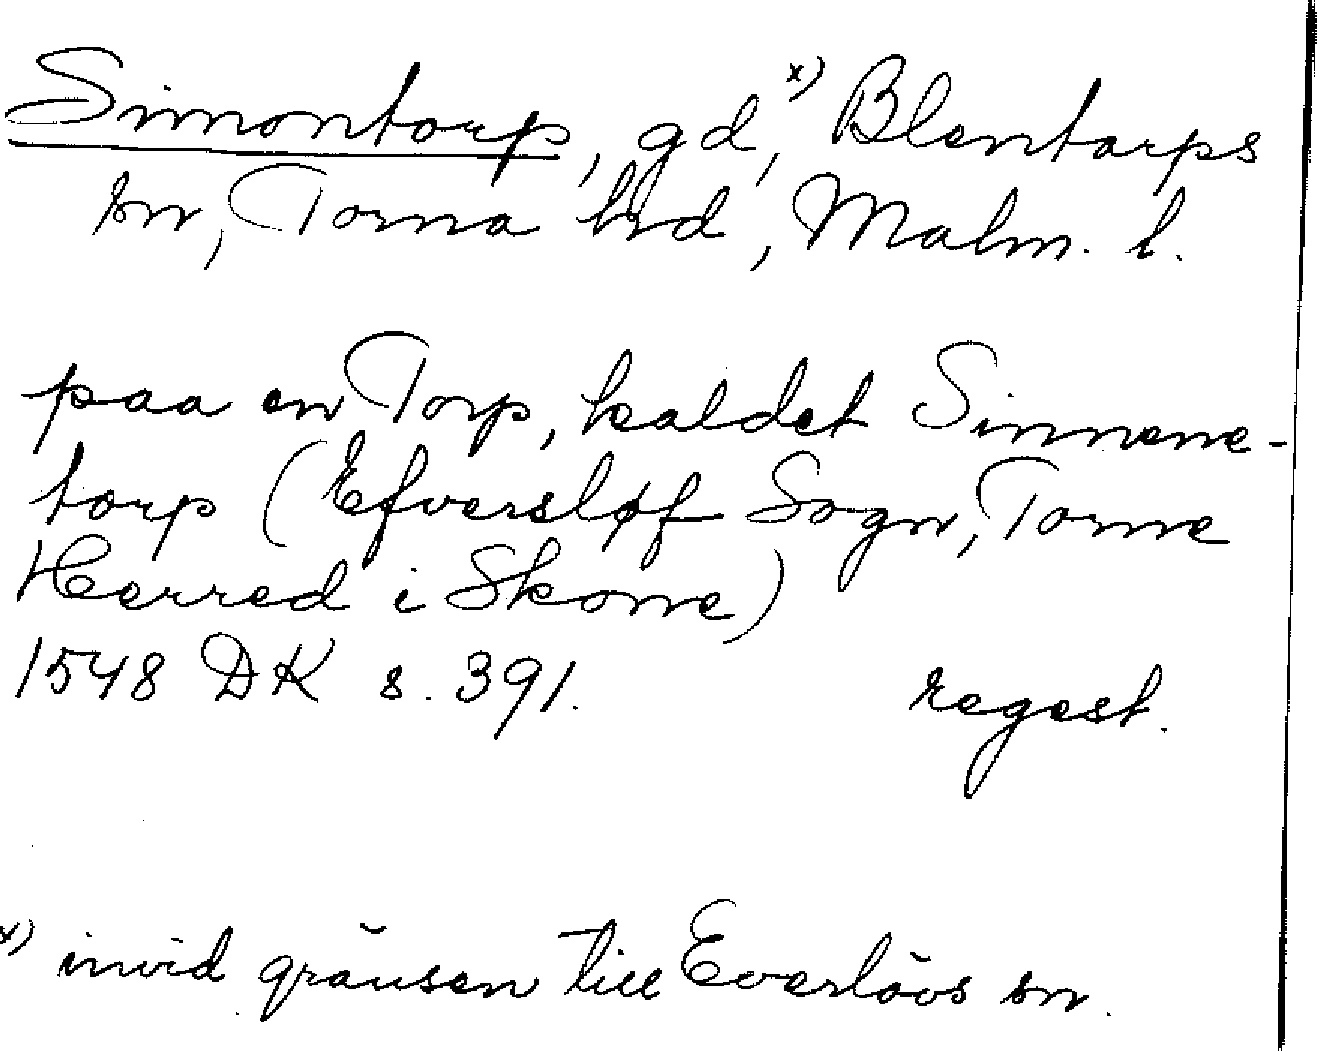 Simontorp, gd,x) Blentarps
sn, Torna hd, Malm. l.
paa en Torp, kaldet Sinnene-
torp (Efversløf Sogn, Torne
Herred i Skone)
1548 DK s. 391. regest.
x) invid gränsen till Everlövs sn.